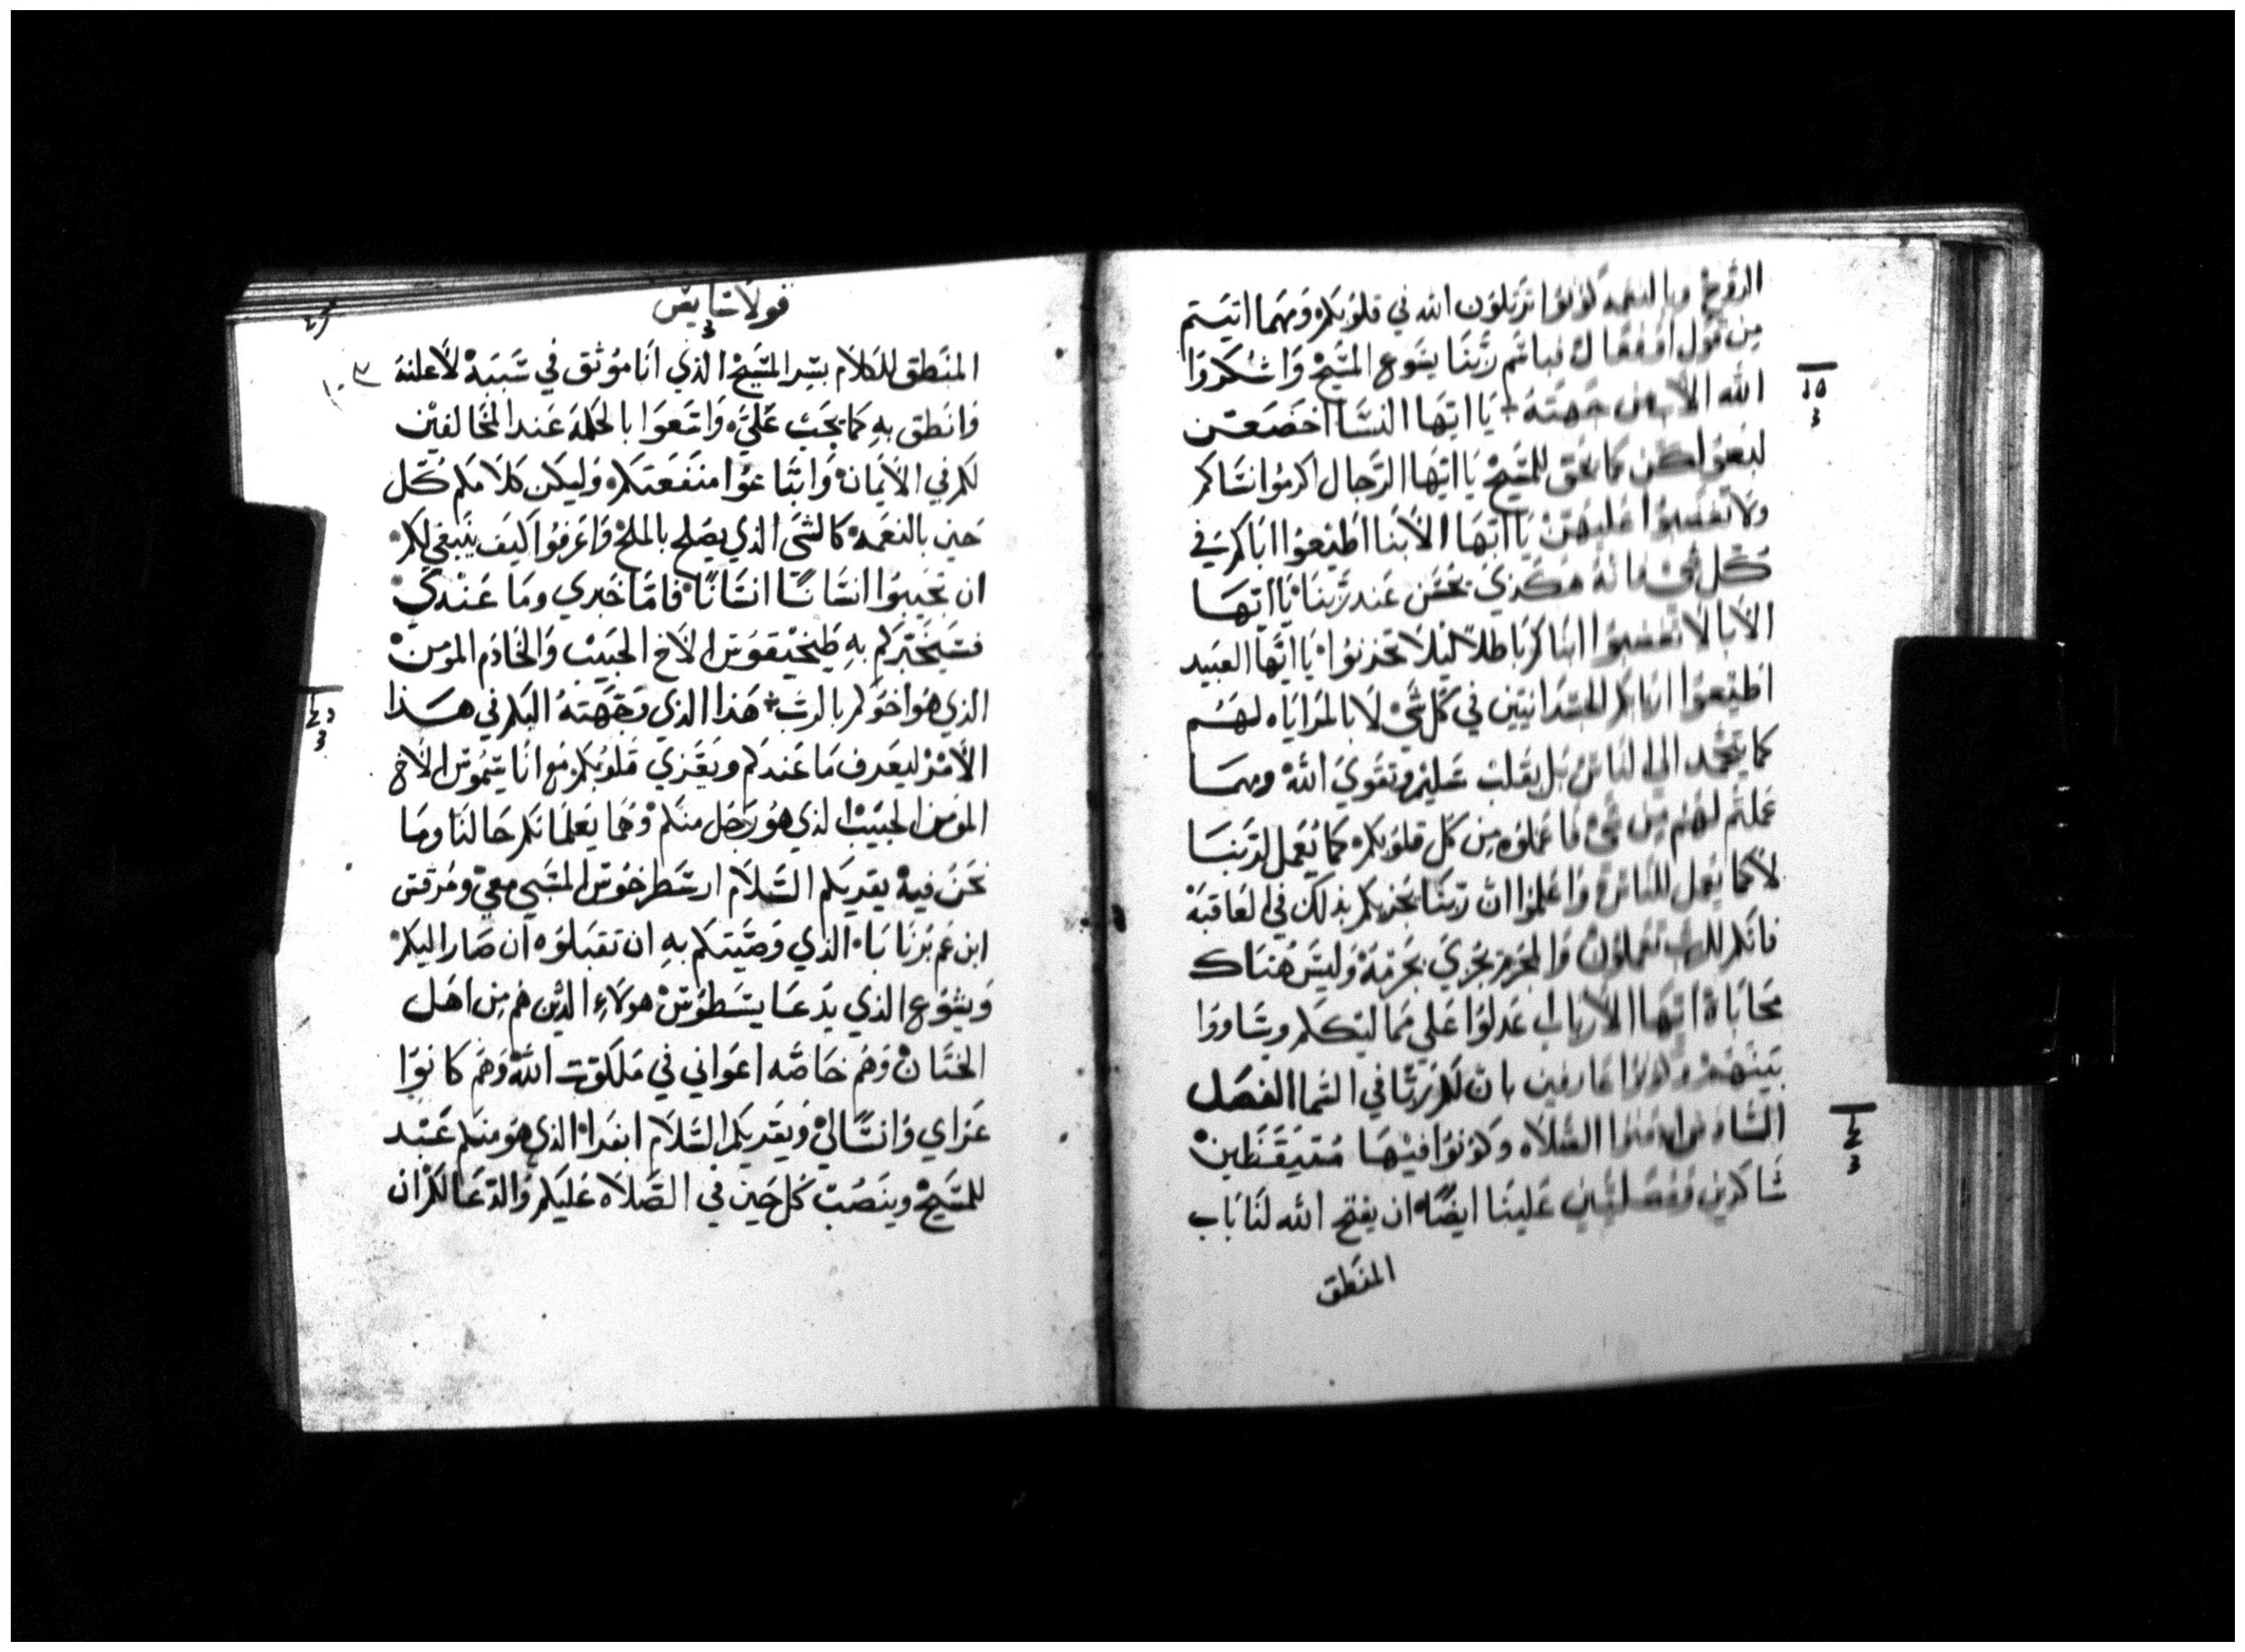 الروح وبالنعمه كونوا ترتلون الله في قلوبكم ومهما اتيتم
من قول او فعال فباسم ربنا يسوع المسيح واشكروا
الله الاب من جهته يا ايتها النسا اخضعن
لبعولتكن كما يحق للمسيح يا ايها الرجال اكرموا نساكم
ولا تغضبوا عليهن يا ايها الابنا اطيعوا اباكم في
كل شي فانه هكذي يحسن عند ربنا يا ايها
الابا لا تغضبوا ابناكم باطلا ليلا تحزنوا يا ايها العبيد
اطيعوا اربابكم الجسدانيين في كل شي لا بالمراياه لهم
كما يتحمد الي الناس بل بقلب سليم وتقوي الله ومهما
عملتم لهم من شي فاعملوه من كل قلوبكم كما يعمل لربنا
لا كما يعمل للناس واعلموا ان ربنا يجزيكم بذلك في العاقبة
فانكم للرب تعملون والمجرم يجزي بجرمه وليس هناك
محاباة ايها الارباب اعدلوا علي مماليككم وساووا
بينهم وكونوا عارفين بان لكم ربا في السما الفصل
السادس ادمنوا الصلاه وكونوا فيها متيقظين
شاكرين ومصليين علينا ايضا ان يفتح الله لنا باب
المنطق
قولاسايس
المنطق للكلام بسر المسيح الذي انا موثق في سببه لاعلنه
وانطق به كما يجب علي واتبعوا بالحكمه عند المخالفين
لكم في الايمان وابتاعوا منفعتكم وليكن كلامكم كل
حين بالنعمه كالشي الذي يصلح بالملح واعرفوا كيف ينبغي لكم
ان تجيبوا انسانا انسانا فاما خبري وما عندي
فسيخبركم به طيخيقوس الاخ الحبيب والخادم المومن
الذي هو اخوكم بالرب هذا الذي وجهته اليكم في هذا
الامر ليعرف ما عندكم ويعزي قلوبكم مع اناسيموس الاخ
المومن الحبيب الذي هو رجل منكم وهما يعلمانكم حالنا وما
نحن فيه يقريكم السلام ارسطرخوس المسبي معي ومرقس
ابن عم برنابا الذي وصيتكم به ان تقبلوه ان صار اليكم
ويشوع الذي يدعا يسطوس هولاء الذين هم من اهل
الختان وهم خاصه اعواني في ملكوت الله وهم كانوا
عزاي وانسا لي ويقريكم السلام ابفرا الذي هو منكم عبد
للمسيح وينصب كل حين في الصلاه عليكم والدعا لكم ان